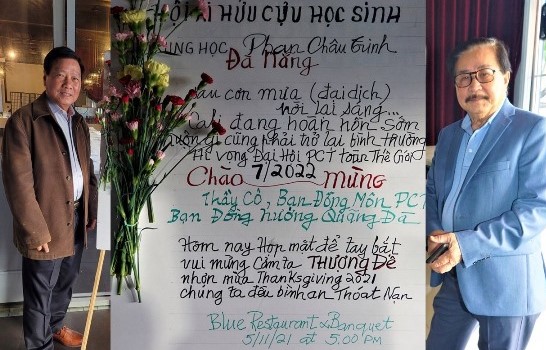 HỘI ÁI HỮU CỰU HỌC SINH
TRUNG HỌC Phan Châu Trinh
Đà Nẵng
Sau cơn mưa (đại dịch)
trời lại sáng...
Cali đang hoàn hồn Sớm
muộn gì cũng phải trở lại bình thường
Hi vọng Đại Hội PCT toàn Thế Giới
7/2022
Chào Mừng
Thầy Cô, Bạn Đồng Môn PCT
Bạn Đồng Hương Quảng Đà
Hôm nay Họp mặt để tay bắt
vui mừng Cảm tạ THƯỢNG ĐẾ
nhơn mùa Thanksgiving 2021
chúng ta đều bình an Thoát Nạn
Blue Restaurant & Banquet
5/11/21 at 5:00 PM